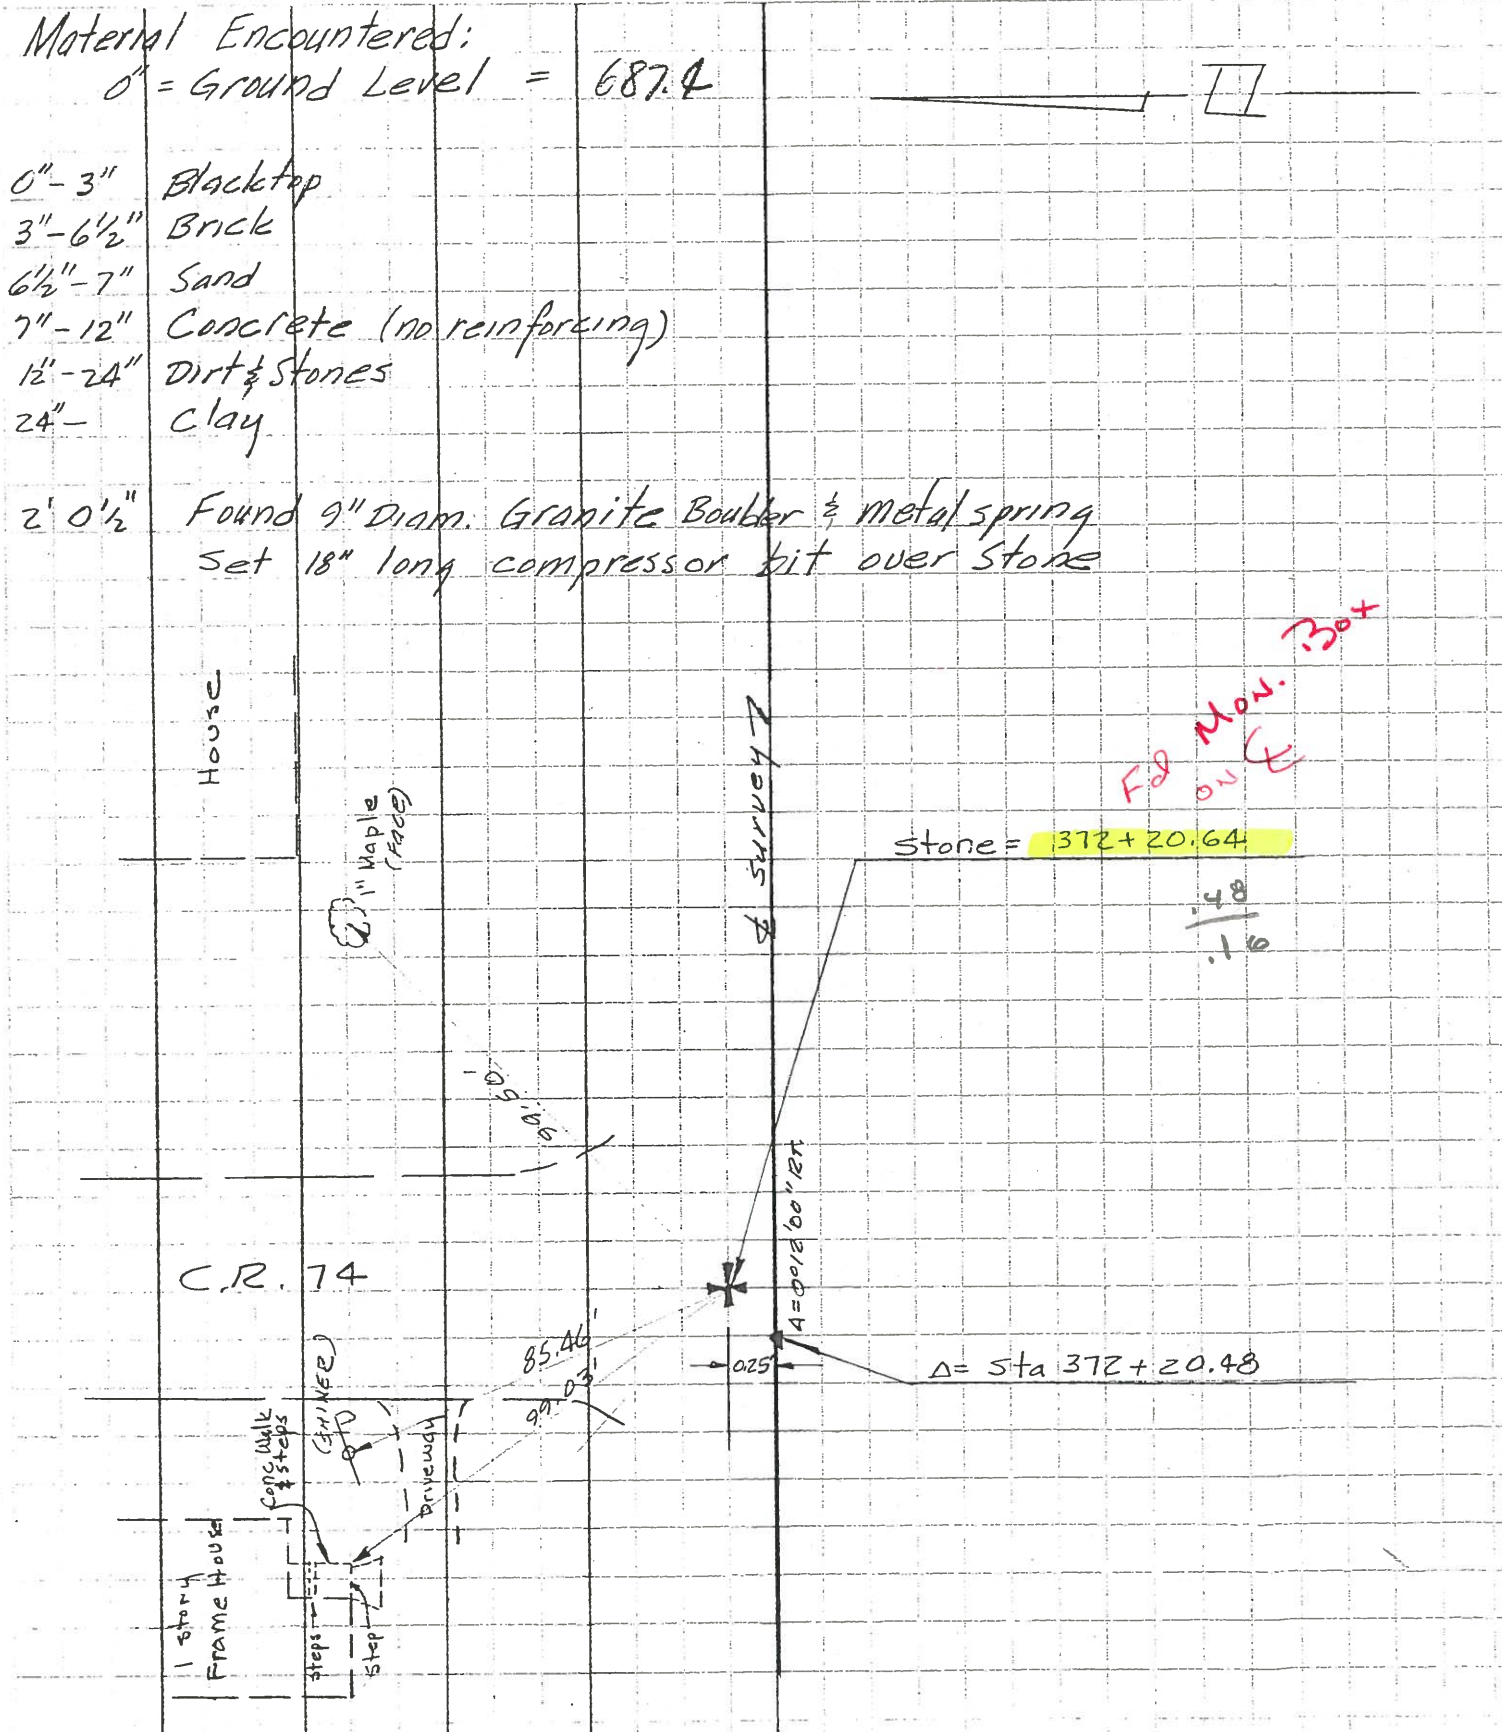 Material Encountered:
0" = Ground Level = 687.4
0"-3" Blacktop
3"-6½" Brick
6½"-7" Sand
7"-12" Concrete (no reinforcing)
12"-24" Dirt & Stones
24"- Clay
2' 0½" Found 9" Diam. Granite Boulder & metal spring
Set 18" long compressor bit over Stone
House
1" Maple
(FACE)
℄ Survey
Fd Mon. Box
ON ℄
Stone = 372+20.64
.48
.16
99.60'
Δ=0°12'00"RT
C.R. 74
85.46'
99.03'
0.25'
Δ= Sta 372+20.48
(SHINER)
Conc Walk
& Steps
Driveway
1 story
Frame House
Steps
Step